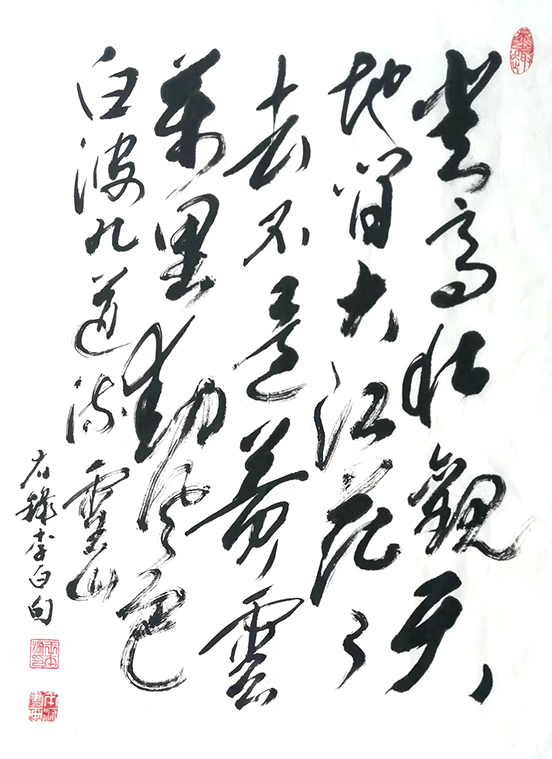 登高壯觀天
地間大江茫々
去不還黃雲
萬里動風色
白波九道流雪山
右錄李白句